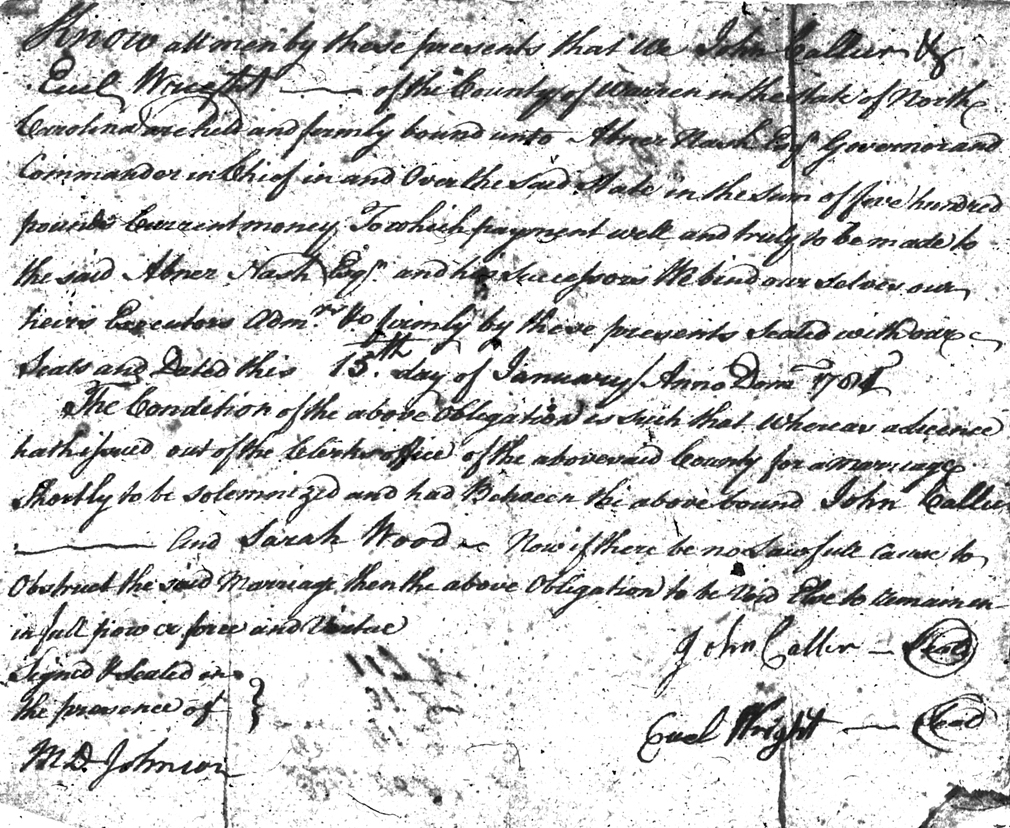 Know all men by these presents that We John Caller &
Euel Wright of the County of Warren in the State of North
Carolina are held and firmly bound unto Abner Nash Esqr. Governor and
Commander in Chief in and Over the said State in the sum of five hundred
pounds Current money To which payment well and truly to be made to
the said Abner Nash Esqr. and his Successors We bind our selves our
heirs Executors Admrs. &c firmly by these presents Sealed with our
Seals and Dated this 15th day of January Anno Dom 1781
The Condition of the above Obligation is such that Whereas a Licence
hath issued out of the Clerks office of the abovesaid County for a marriage
Shortly to be solemnized and had Between the above bound John Caller
And Sarah Wood Now if there be no Lawfull Cause to
Obstruct the said Marriage then the above Obligation to be Void Else to remain
in full power force and Virtue
Signed & Sealed in
the presence of
John Caller Seal
Euel Wright Seal
M. D. Johnson